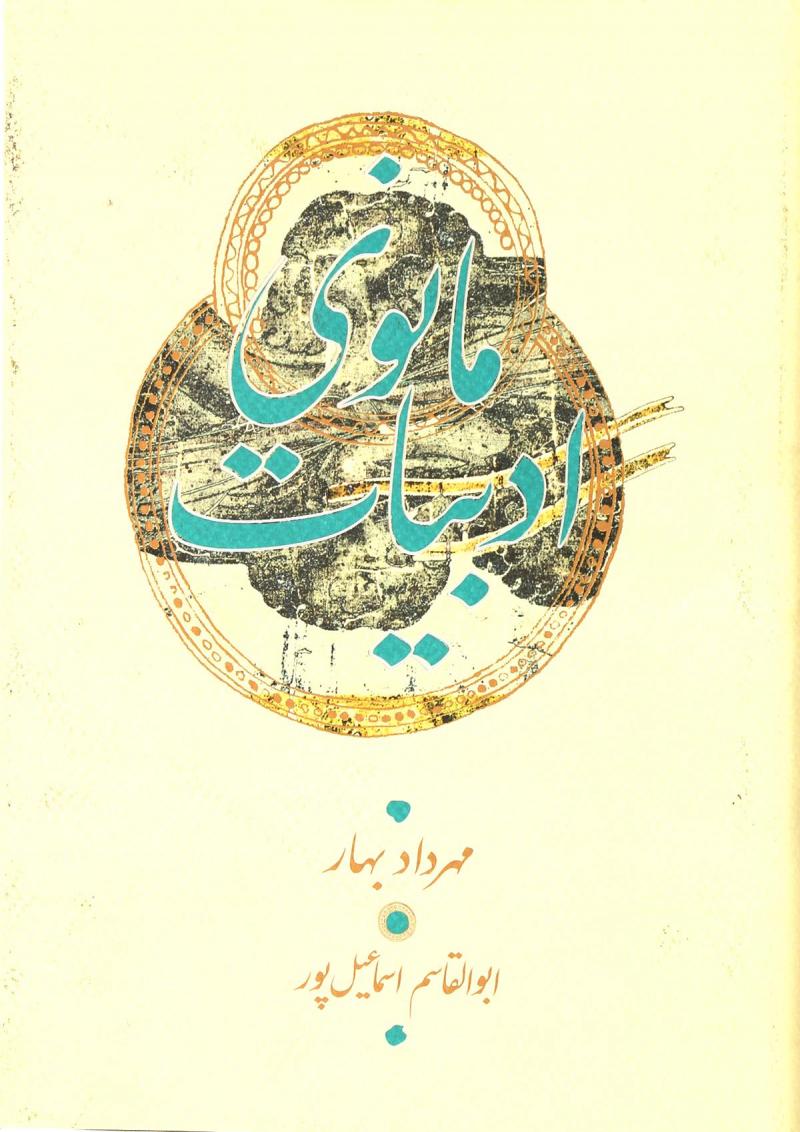 ادبیات
مانوی
مهرداد بهار
ابوالقاسم اسماعیل‌پور